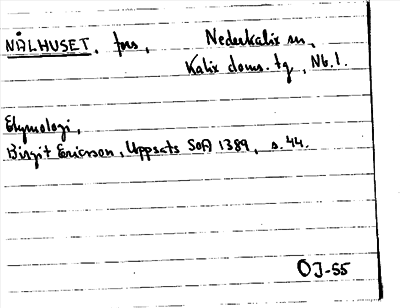 NÅLHUSET, fors, Nederkalix sn,
Kalix doms. tg, Nb. l.
Etymologi,
Birgit Ericson, Uppsats SOA 1389, s. 44.
OJ-55